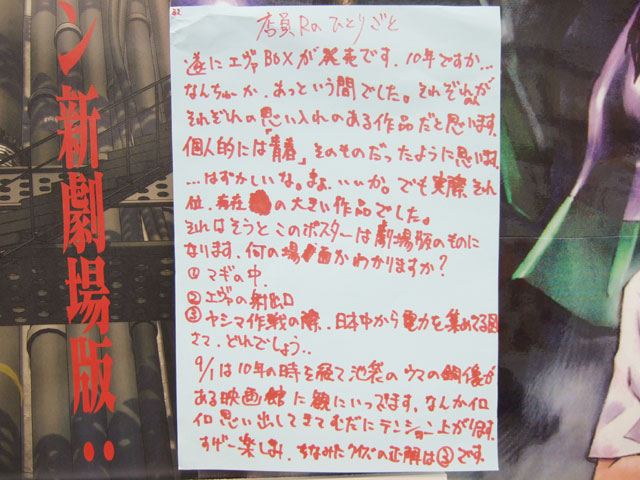 ン新劇場版:
店員Rのひとりごと
遂にエヴァBOXが発売です。10年ですか…
なんちゅーか、あっという間でした。それぞれが
それぞれの思い入れのある作品だと思います。
個人的には「青春」そのものだったように思いますね。
…はずかしいな。まぁ、いいか。でも実際それ
位、存在の大きい作品でした。
それはそうとこのポスターは劇場版のものに
なります。何の場面かわかりますか?
①マギの中。
②エヴァの射出口
③ヤシマ作戦の際、日本中から電力を集めてる図
さて、どれでしょう。。
9/1は10年の時を経て池袋のウマの銅像が
ある映画館に観にいってきます。なんかイロ
イロ思い出してきてむだにテンション上がります。
すげー楽しみ。ちなみにクイズの正解は③です。